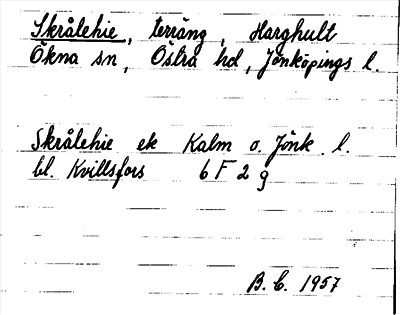 Skrålehie, terräng, Harghult
Ökna sn, Östra hd, Jönköpings l.
Skrålehie ek Kalm o. Jönk. l.
bl. Kvillsfors 6 F 2 g
B. C. 1957